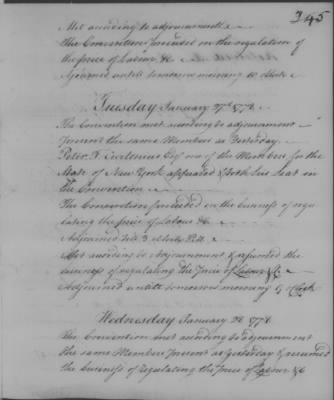 345
Met according to adjournment
The Convention proceeded on the regulation of
the price of Labour &c
Adjourned until tomorrow morning 10 oClock
Tuesday January 27th 1778
The Convention met according to adjournment
Present the same Members as Yesterday.
Peter T. Curtenius Esqr one of the Members for the
State of New York appeared & took his Seat in
the Convention
The Convention proceeded on the business of regu
lating the price of Labour &c
Adjourned till 3 oClock P.M.
Met according to Adjournment & resumed the
business of regulating the Price of Labour &c
Adjourned until tomorrow morning 9 oClock
Wednesday January 28 1778
The Convention met according to adjournment
the same Members Present as Yesterday & resumed
the business of regulating the Price of Labour &c